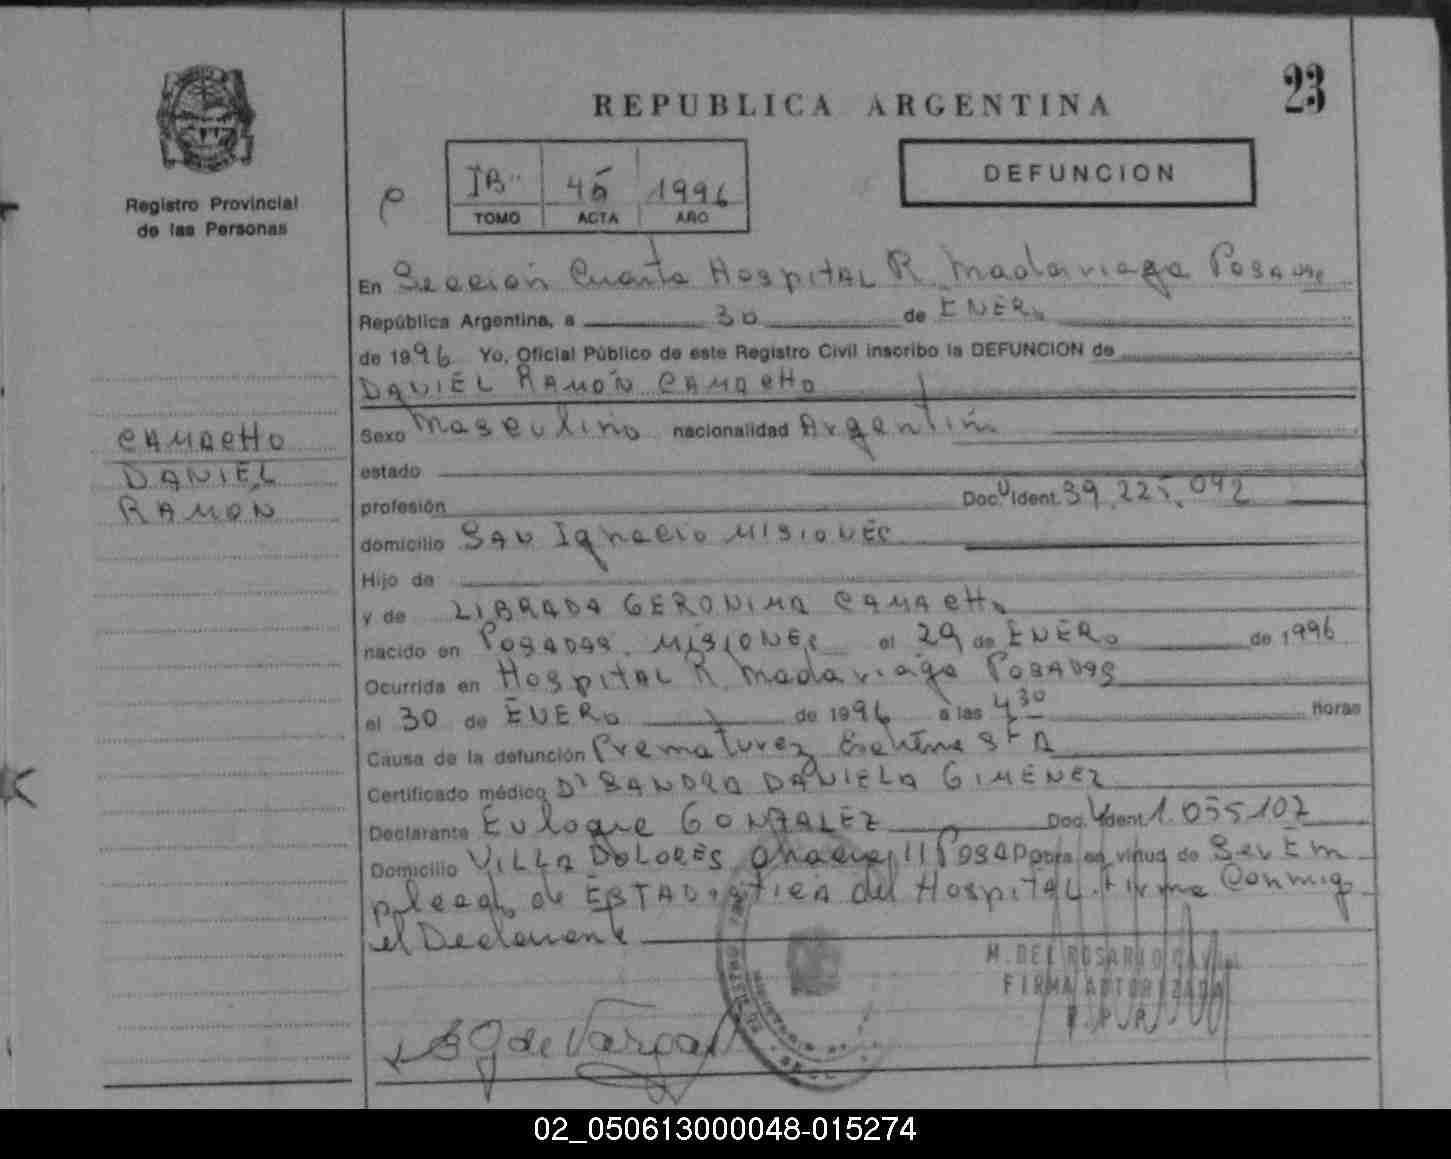 23
REPUBLICA ARGENTINA
DEFUNCION
IB" 45 1996
TOMO ACTA AÑO
Registro Provincial
de las Personas
En Sección Cuarta Hospital R. Madariaga Posadas
República Argentina, a 30 de ENERO
de 1996 Yo, Oficial Público de este Registro Civil inscribo la DEFUNCION de
DANIEL RAMÓN CAMACHO
CAMACHO
DANIEL
RAMÓN
Sexo Masculino nacionalidad Argentin
estado
profesión Doc. Ident. 39.225.092
domicilio SAN Ignacio MISIONES
Hijo de
y de LIBRADA GERONIMA CAMACHO
nacido en POSADAS. MISIONES el 29 de ENERO de 1996
Ocurrida en Hospital R. Madariaga POSADAS
el 30 de ENERO de 1996 a las 4 30 Horas
Causa de la defunción Prematurez
Certificado médico SANDRA DANIELA GIMENEZ
Declarante Eulogie GONZALEZ Doc. Ident. 1.055.107
Domicilio VILLA DOLORES 11 POSAD obra en virtud de Ser Em
pleado de ESTADISTICA del Hospital. Firma Conmigo
el Declarante
M. DEL ROSARIO
FIRMA AUTORIZADA
R. P. P.
de Vargas
02_050613000048-015274